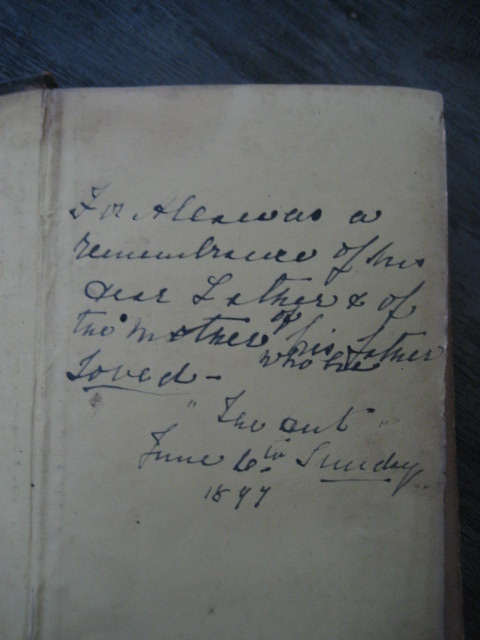 For as a
remembrance of his
dear Father & of
the mother of his father
who he
loved -
" The "
June 6th Sunday
1897